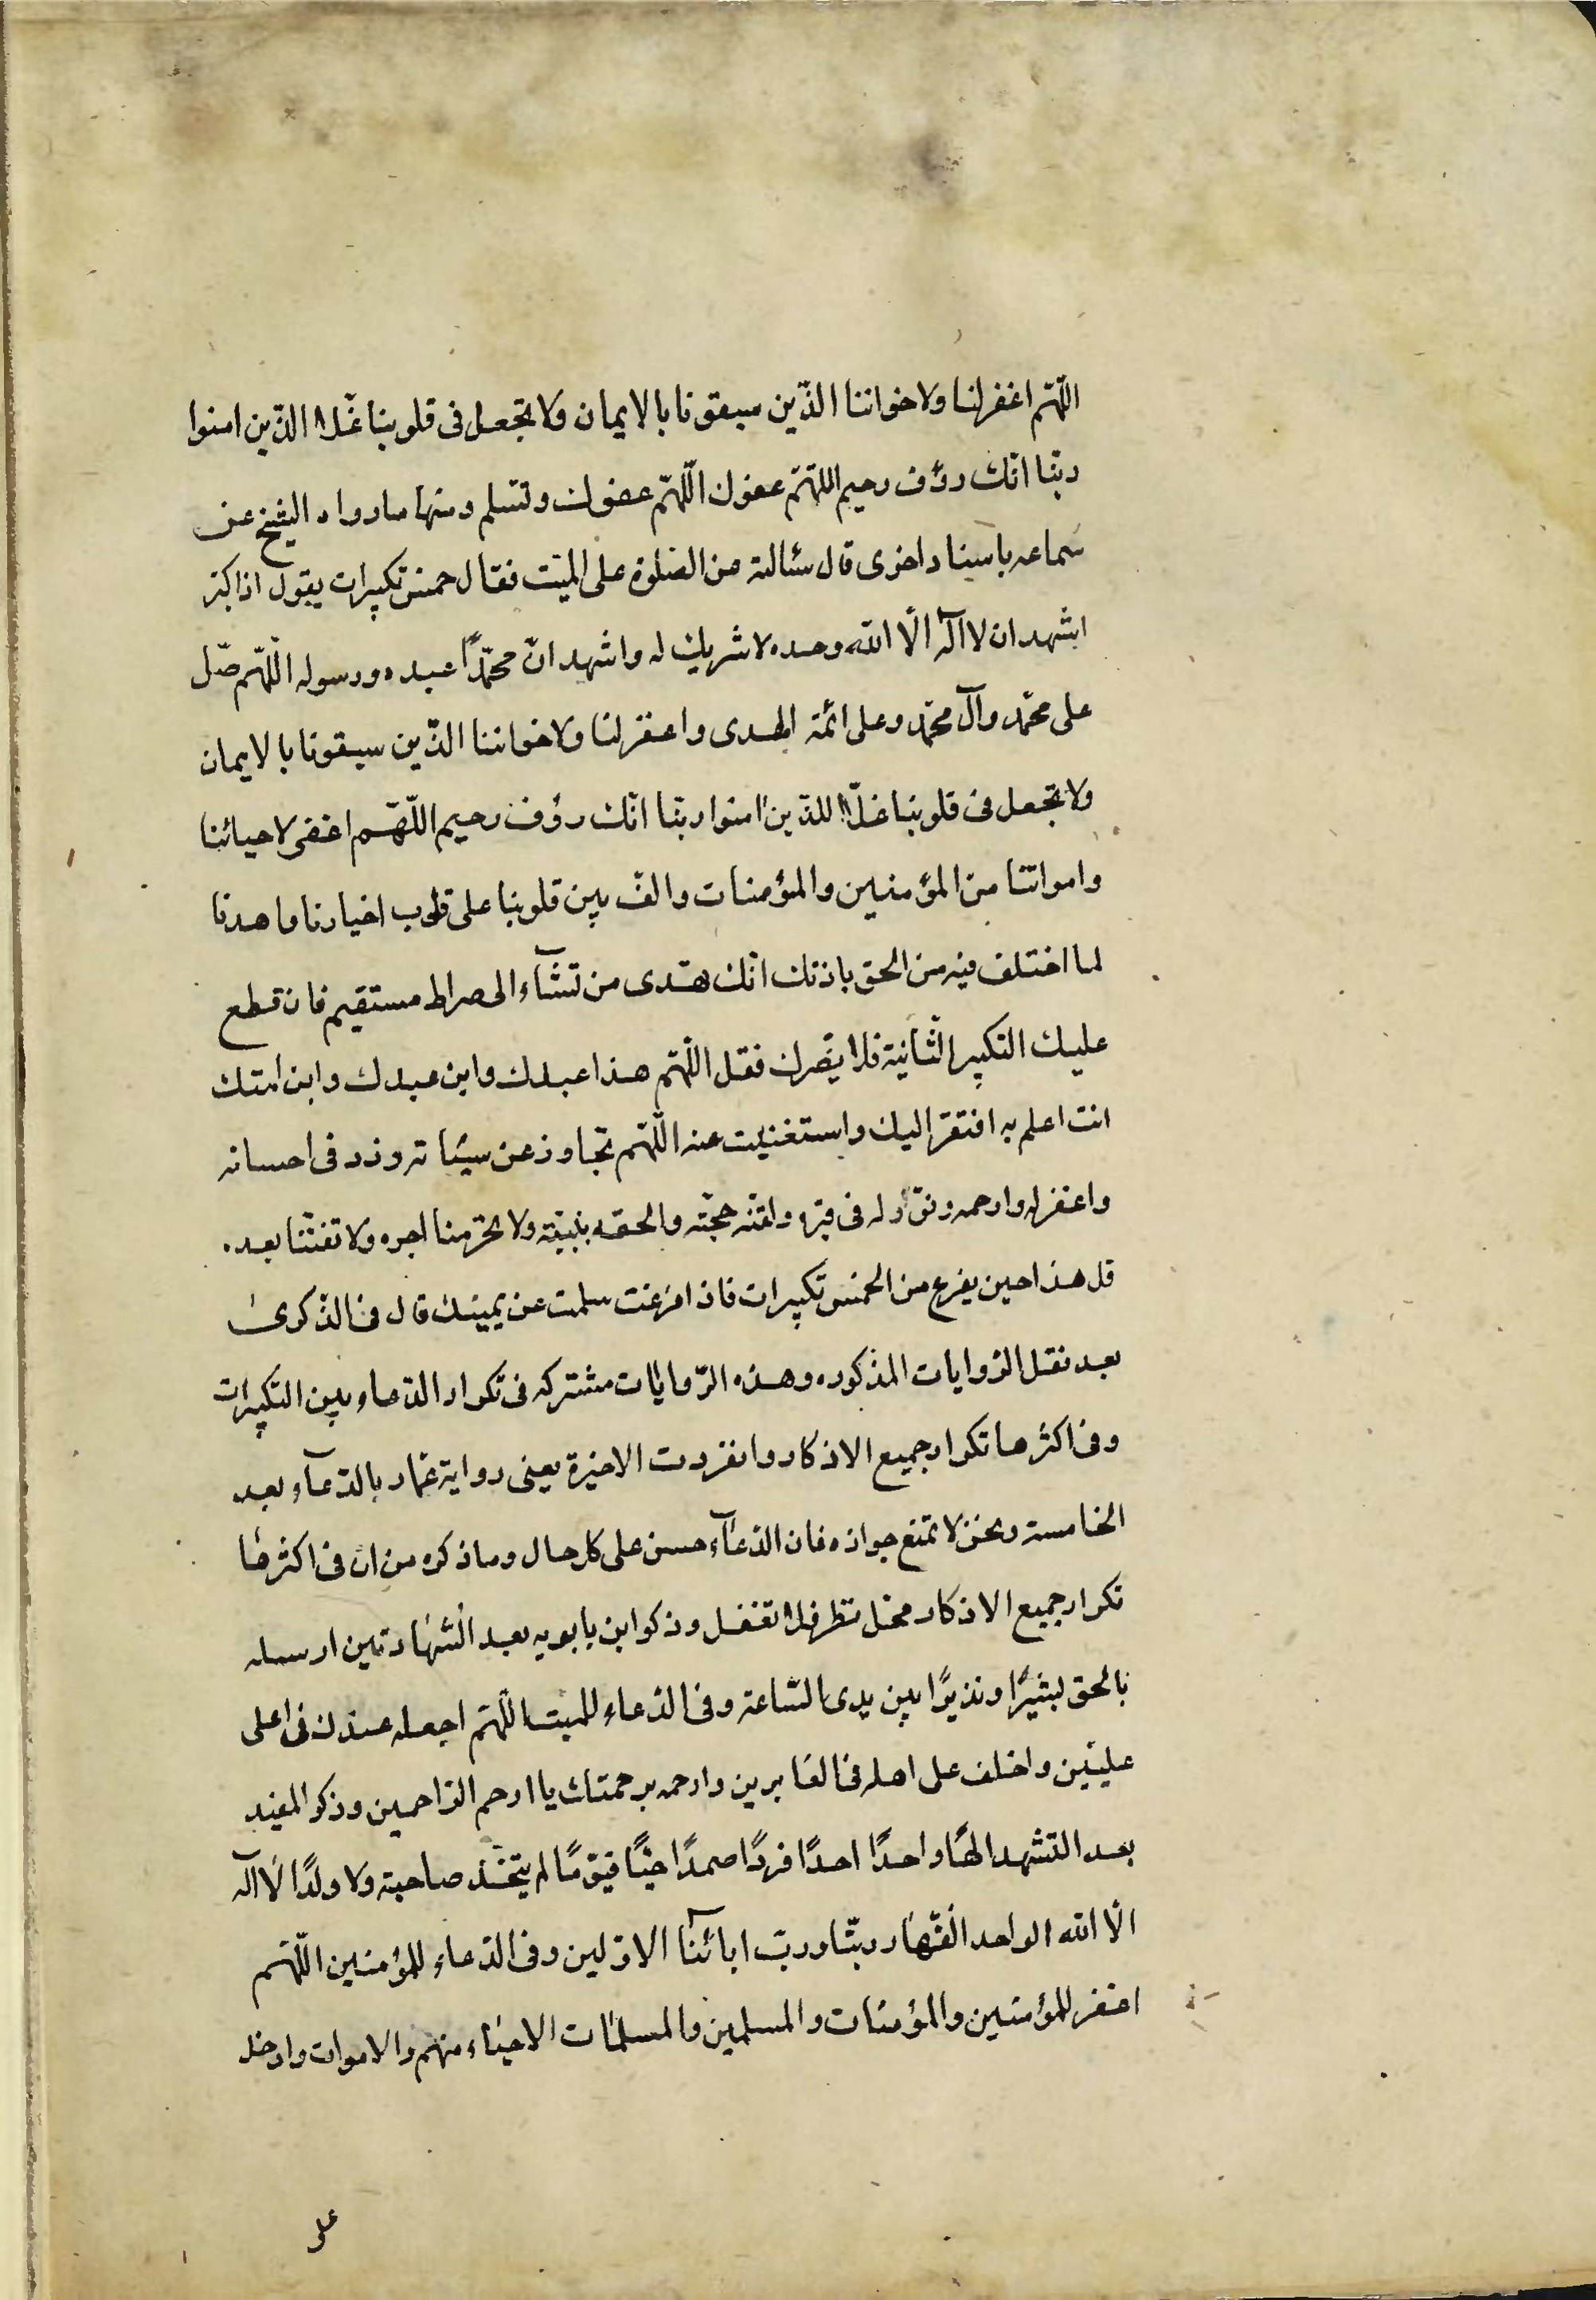 اللّهمّ اغفر لنا ولاخواننا الذّين سبقونا بالايمان ولا تجعل فى قلوبنا غّلا الذّين امنوا
ربّنا انّك رؤف رحيم اللهّمّ عفوك اللّهمّ عفوك وتسلم ومنها ما رواه الشيخ عن
سماعه باسناد اخرى قال سئالته عن الصّلوة على الميّت فقال خمس تكبيرات يقول اذا كبّر
اشهد ان لا اله الّا الله وحده لا شريك له واشهد انّ محمّدًا عبده ورسوله اللّهمّ صّل
على محمّد وآل محمّد وعلى ائمّة الهدى واغفر لنا ولاخواننا الذّين سبقونا بالايمان
ولا تجعل فى قلوبنا غلّا للذّين امنوا ربّنا انّك رؤف رحيم اللّهّم اغفر لاحيائنا
وامواتنا من المؤمنين والمؤمنات والف بين قلوبنا على قلوب اخيارنا واهدنا
لما اختلف فيه من الحق باذنك انّك تهّدى من تشآء الى صراط مستقيم فان قطع
عليك التكبير الثّانية فلا يضّرك فقل اللّهمّ هذا عبدك وابن عبدك وابن امتك
انت اعلم به افتقر اليك واستغنيت عنه اللّهمّ تجّاوز عن سيّئاته وزد فى احسانه
واغفر له وارحمه ونوّر له فى قبره ولقّنه حجّته والحقه بنبيّه ولا تحرّمنا اجره ولا تفتنّا بعده
قل هذا حين يفرغ من الخمس تكبيرات فاذا فرغت سلمت عن يمينك قال فى الذّكرى
بعد نقل الرّوايات المذكوره وهذه الرّوايات مشتركه فى تكرار الدّعاء بين التّكبيرات
وفى اكثرها تكرار جميع الاذكار وانفردت الاخيرة يعنى رواية عمّار بالدّعآء بعد
الخامسة ونحن لا نمنع جوازه فان الدّعآء حسن على كل حال وما ذكره من انّ فى اكثرها
تكرار جميع الاذكار محّل نظر فلا تغفل وذكر ابن بابويه بعد الشّهادتين ارسله
بالحق بشيرًا ونذيرًا بين يدى السّاعة وفى الدّعاء للميت اللّهمّ اجعله عندك فى اعلى
عليّين واخلف على اهله فى الغابرين وارحمه برحمتك يا ارحم الرّاحمين وذكر المفيد
بعد التشهد الهًا واحدًا احدًا فردًا صمدًا حيّا قيّومًا لم يتخّذ صاحبة ولا ولدًا لا اله
الّا الله الواحد القّهار ربّنا وربّ ابآئنا الاوّلين وفى الدّعاء للمؤمنين اللّهمّ
اغفر للمؤمنين والمؤمنات والمسلمين والمسلمات الاحياء منهم والاموات وادخل
على